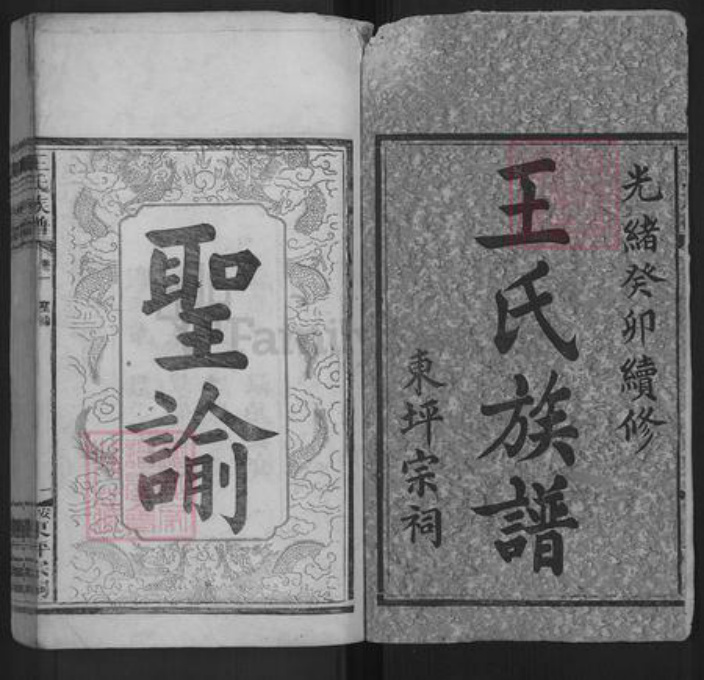 光緒癸卯續修
王氏族譜
東坪宗祠
聖諭
王氏族譜
卷一
聖諭
一
東坪宗祠